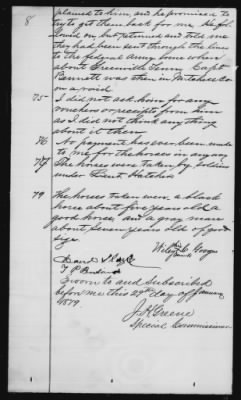 8
plained to him, and he promised to
try to get them back for me He fol-
lowed on, but returned and told me
they had been sent through the lines
to the federal army some where
about Greenville Tenn. Capt
Bennett was then in Mitchel Co.
on a raid.
75 I did not ask him for any
vouchers or receipts from him
as I did not think any thing
about it then
76 No payment has ever been made
to me for the horses in any way
77 The horses were taken by soldiers
under Lieut
79 The horses taken were a black
horse about five years old a
good horse, and a gray mare
about seven years old of good
size.
David
Sworn to and Subscribed
before me this 27th day of January
1879
J. K. Greene
Special Commissioner